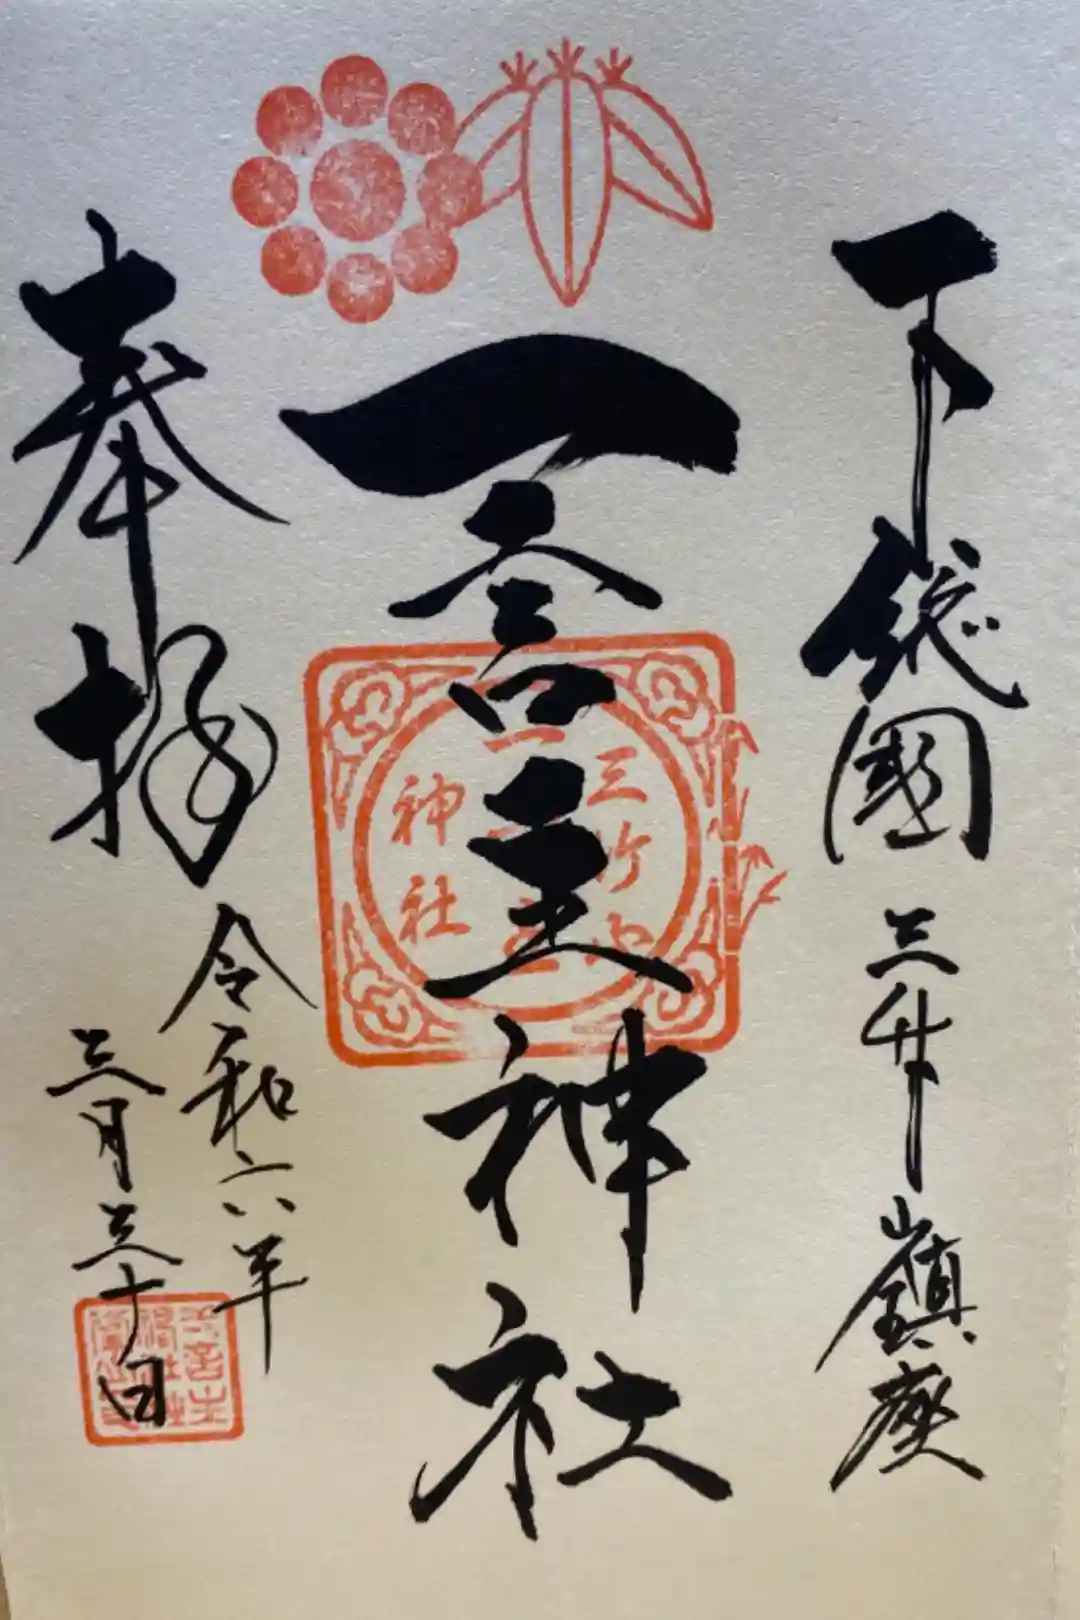 下総國三竹鎮座
一言主神社
奉拝
令和六年
三月三十日
三竹山
一言主
神社